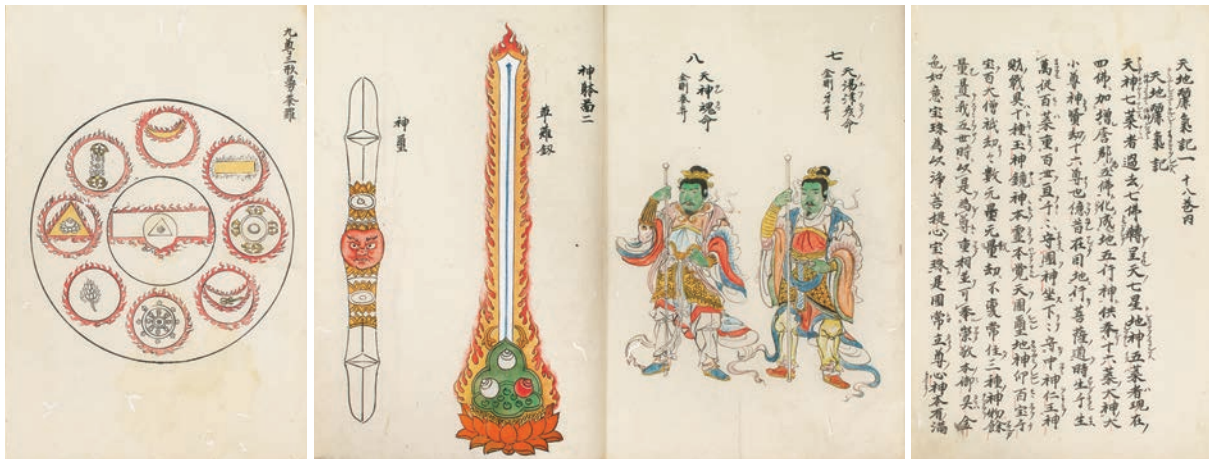 天地麗氣記一 十八巻内
天地麗氣記
天神七葉者過去七佛轉呈天七星地神五葉者現在
四佛加増舎那五佛化成地五行神供奉十六葉大神大
小尊神賢劫十六尊也億昔在因地行菩薩道時生千生
萬從百葉重百世直千々守國神坐下々守中神仁王神
戰具十種玉神鏡神本靈本覺天國璽地神仰百宝
宝百大僧祇劫々數无量无量劫不変常住三種神物餘
五世時以是為宗重相生可奉崇敬本御
也如意宝珠為以浄菩提心宝珠是国常立尊心神本有満
七 天萬
金剛牙
八 天神魂命
金剛拳
神勝
草薙釼
神璽
九尊三形曼荼羅